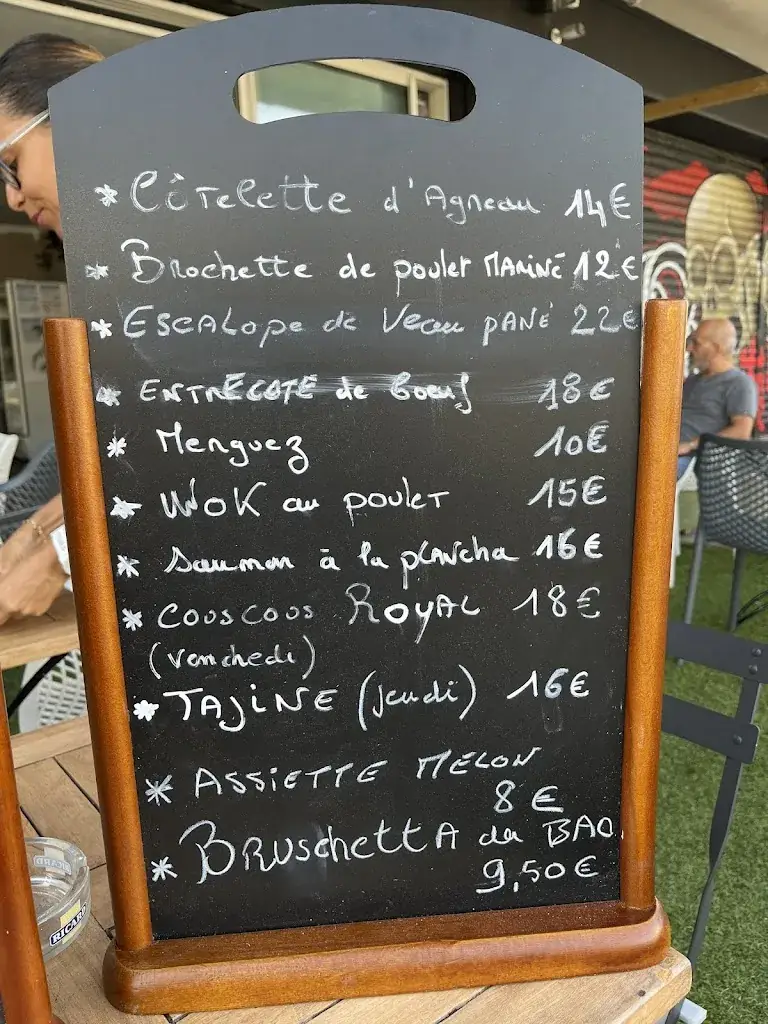 * Côtelette d'Agneau 14€
* Brochette de poulet MARiNÉ 12€
* ESCALope de Veau pANÉ 22€
* ENTRECOTE de boeuf 18€
* Merguez 10€
* WOK au pouleT 15€
* Saumon à la plancha 16€
* COUSCOUS ROYAL 18€
(Vendredi)
* TAJiNE (Jeudi) 16€
* ASSiETTE MELON
8€
* BRUSchettA du BAO.
9,50€
RICARD
RICARD